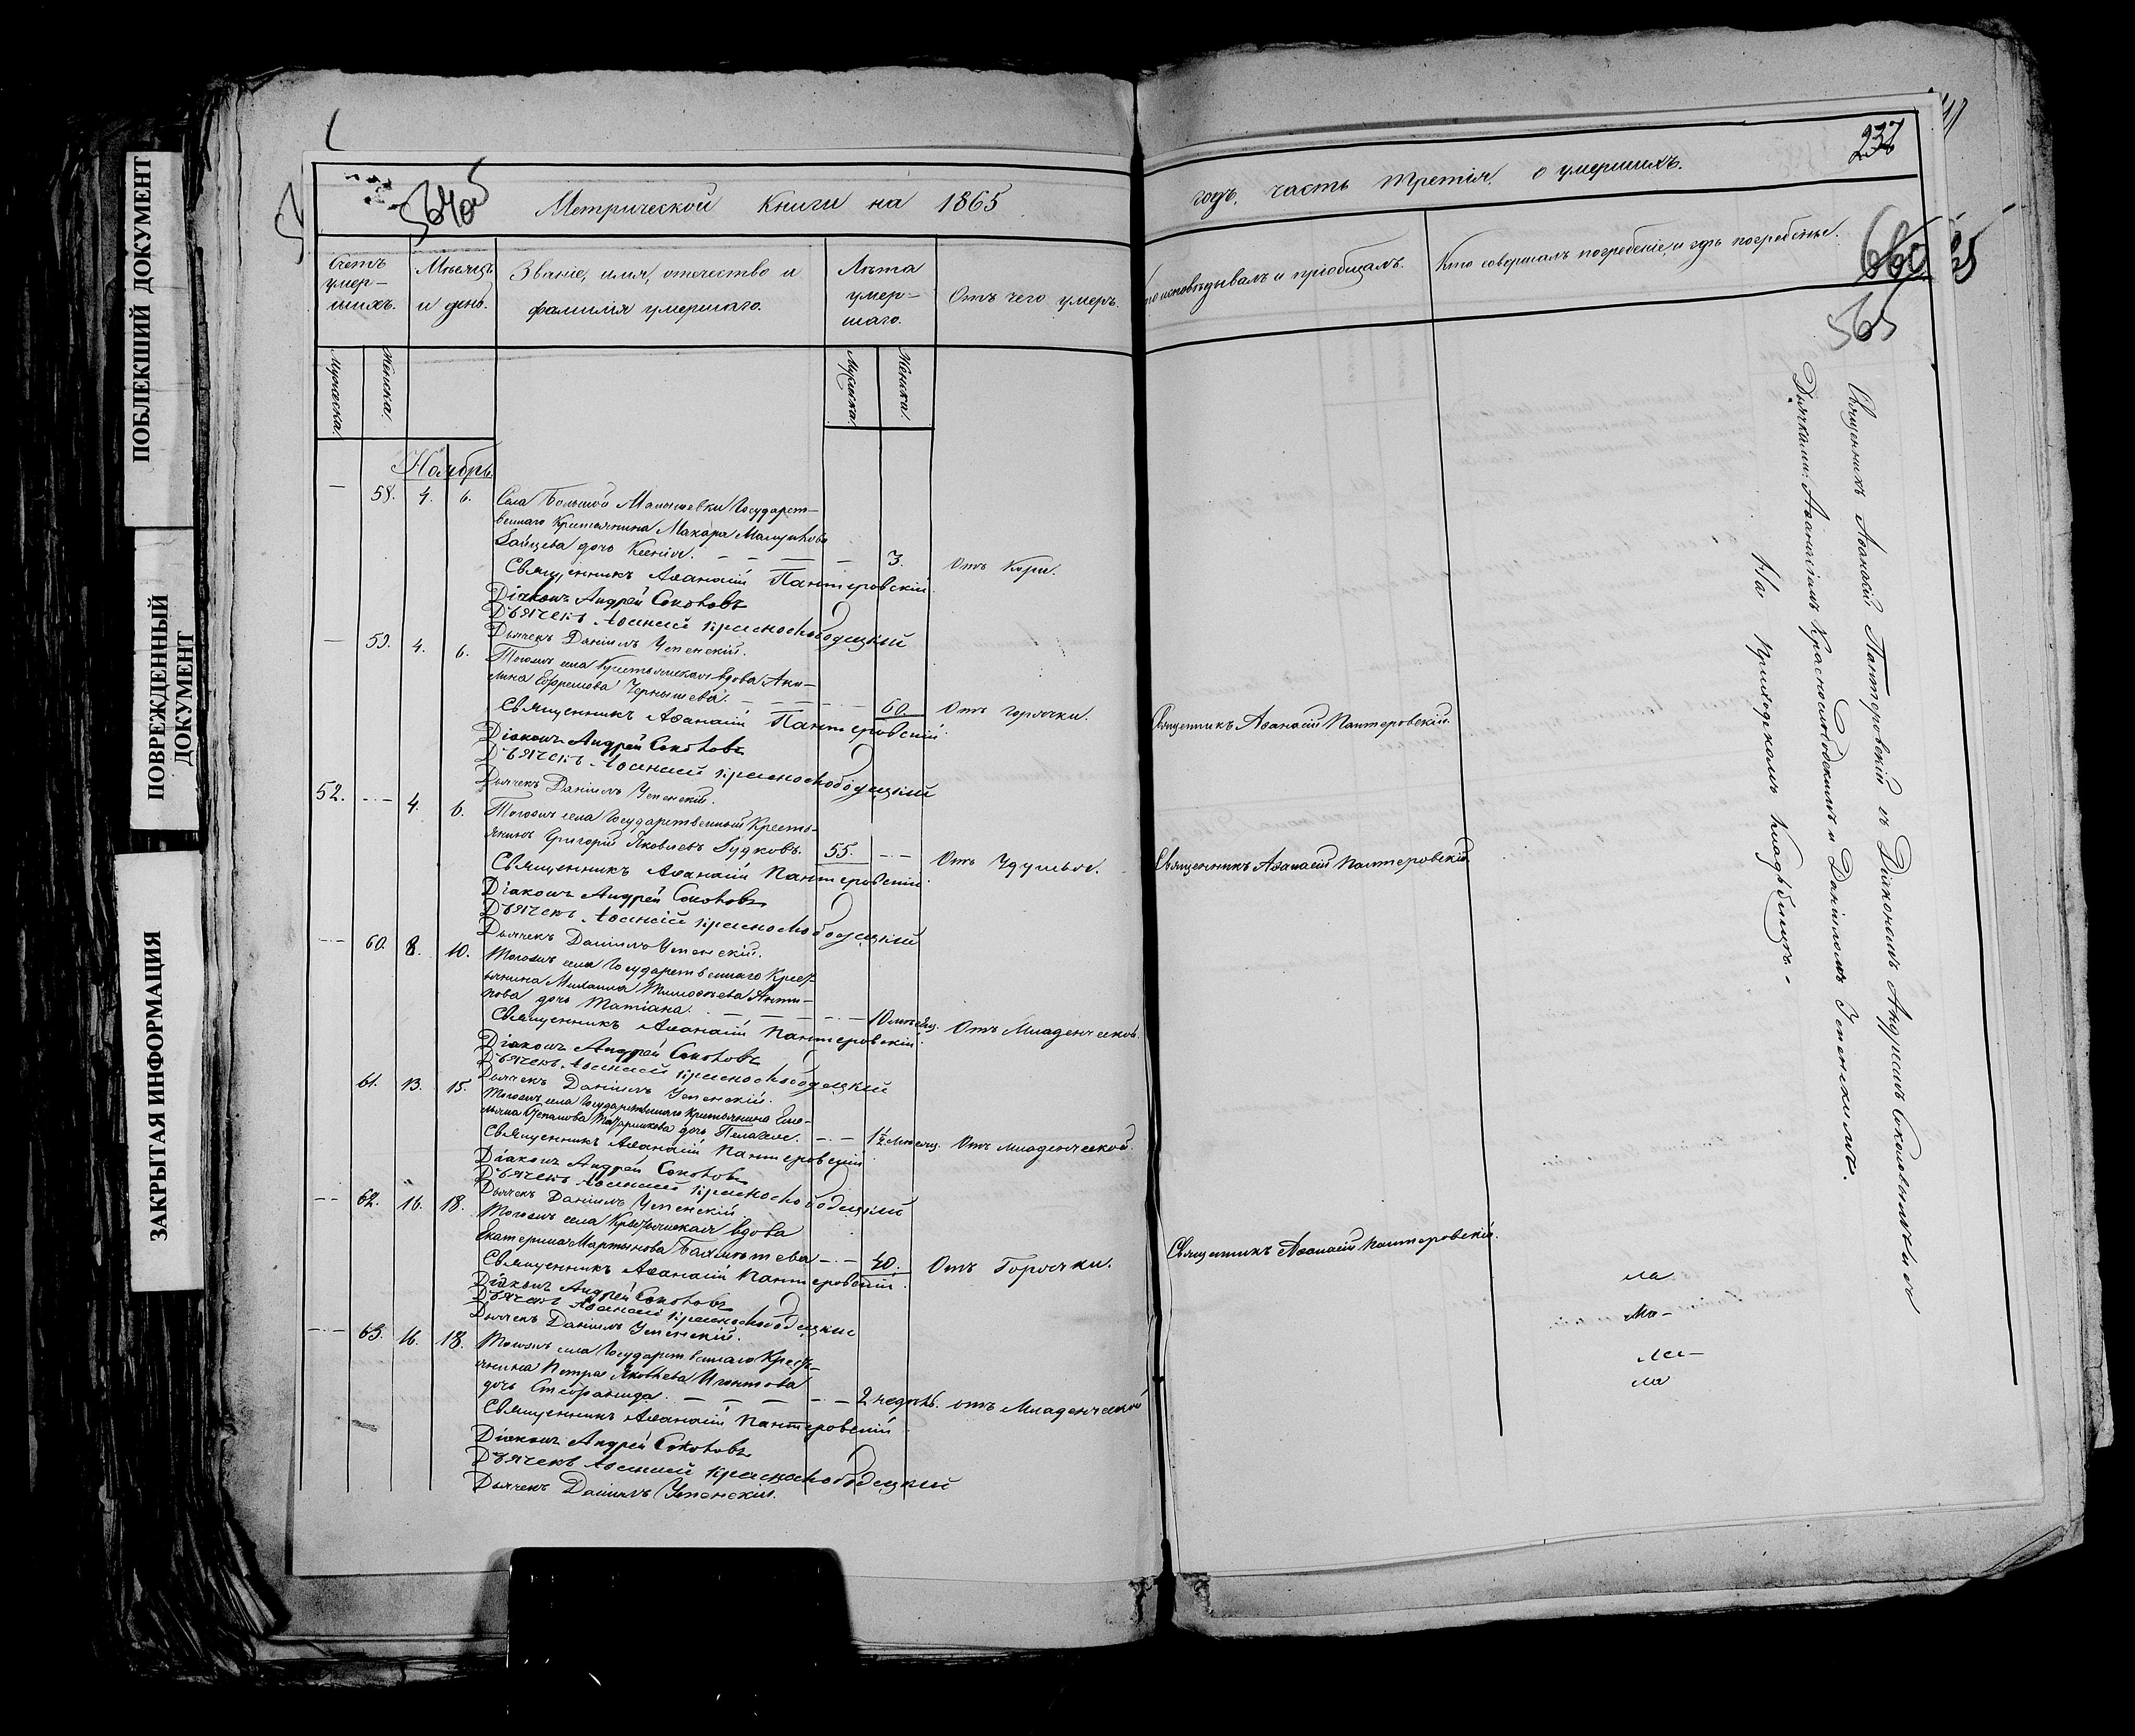 ПОБЛЕКШИЙ ДОКУМЕНТ
ПОВРЕЖДЕННЫЙ
ДОКУМЕНТ
ЗАКРЫТАЯ ИНФОРМАЦИЯ
Метрической книги на 1865
Счетъ умер-шихъ.
Мѣсяцъ и день.
Званіе, имя, отечество и фамилія умершаго.
Лѣта умер-шаго.
Отъ чего умеръ.
Мужеска.
Женска.
Мужеска.
Женска.
Ноябрь
— 58. 4. 6. Села Большой Малышевки Государст-
веннаго Крестьянина Макара
Зайцева дочь Ксенія. — 3. Отъ Кори.
Священникъ Аѳанасій Пантеровскій
Діаконъ Андрей Соколовъ
Дьячекъ Аѳанасій Краснослободецкій
Дьячекъ Даніилъ Успенскій.
— 59. 4. 6. Тогожъ села Крестьянская вдова Аку-
лина Ефремова Чернышева. — 60 Отъ горячки.
Священникъ Аѳанасій Пантеровскій.
Діаконъ Андрей Соколовъ
Дьячекъ Аѳанасій Краснослободецкій
Дьячекъ Даніилъ Успенскій.
52. — 4. 6. Тогожъ села Государственный Кресть-
янинъ Григорій Яковлевъ 55. — Отъ Удушья.
Священникъ Аѳанасій Пантеровскій.
Діаконъ Андрей Соколовъ
Дьячекъ Аѳанасій Краснослободецкій
Дьячекъ Даніилъ Успенскій.
— 60. 8. 10. Тогожъ села Государственнаго Крест-
ьянина Михаила Тимоѳеева Анти-
пова дочь Татіана. — 10 мѣсяц. Отъ Младенческой.
Священникъ Аѳанасій Пантеровскій.
Діаконъ Андрей Соколовъ
Дьячекъ Аѳанасій Краснослободецкій
Дьячекъ Даніилъ Успенскій.
61. 13. 15. Тогожъ села Государственнаго Крестьянина Еме-
льяна Степанова дочь Пелагея. — 1½ мѣсяц. Отъ Младенческой.
Священникъ Аѳанасій Пантеровскій
Діаконъ Андрей Соколовъ
Дьячекъ Аѳанасій Краснослободецкій
Дьячекъ Даніилъ Успенскій.
— 62. 16. 18. Тогожъ села Крестьянская вдова
Екатерина Мартынова — 40. Отъ Горячки.
Священникъ Аѳанасій Пантеровскій.
Діаконъ Андрей Соколовъ
Дьячекъ Аѳанасій Краснослободецкій
Дьячекъ Даніилъ Успенскій.
— 63. 16. 18. Тогожъ села Государственнаго Крест-
янина Петра Яковлева
дочь Стефанида. — 2 недѣль. отъ Младенческой
Священникъ Аѳанасій Пантеровскій
Діаконъ Андрей Соколовъ
Дьячекъ Аѳанасій Краснослободецкій
Дьячекъ Даніилъ Успенскій.
годъ, часть третія, о умершихъ.
237
исповѣдывалъ и пріобщалъ.
Кто совершалъ погребеніе, и гдѣ погребены.
565
Священникъ Аѳанасій Пантеровскій.
Священникъ Аѳанасій Пантеровскій.
Священникъ Аѳанасій Пантеровскій.
Священникъ Аѳанасій Пантеровскій съ Діакономъ Андреемъ Соколовымъ и съ
Дьячками: Аѳанасіемъ Краснослободскимъ и Даніиломъ Успенскимъ.
На приходскомъ кладбищѣ.